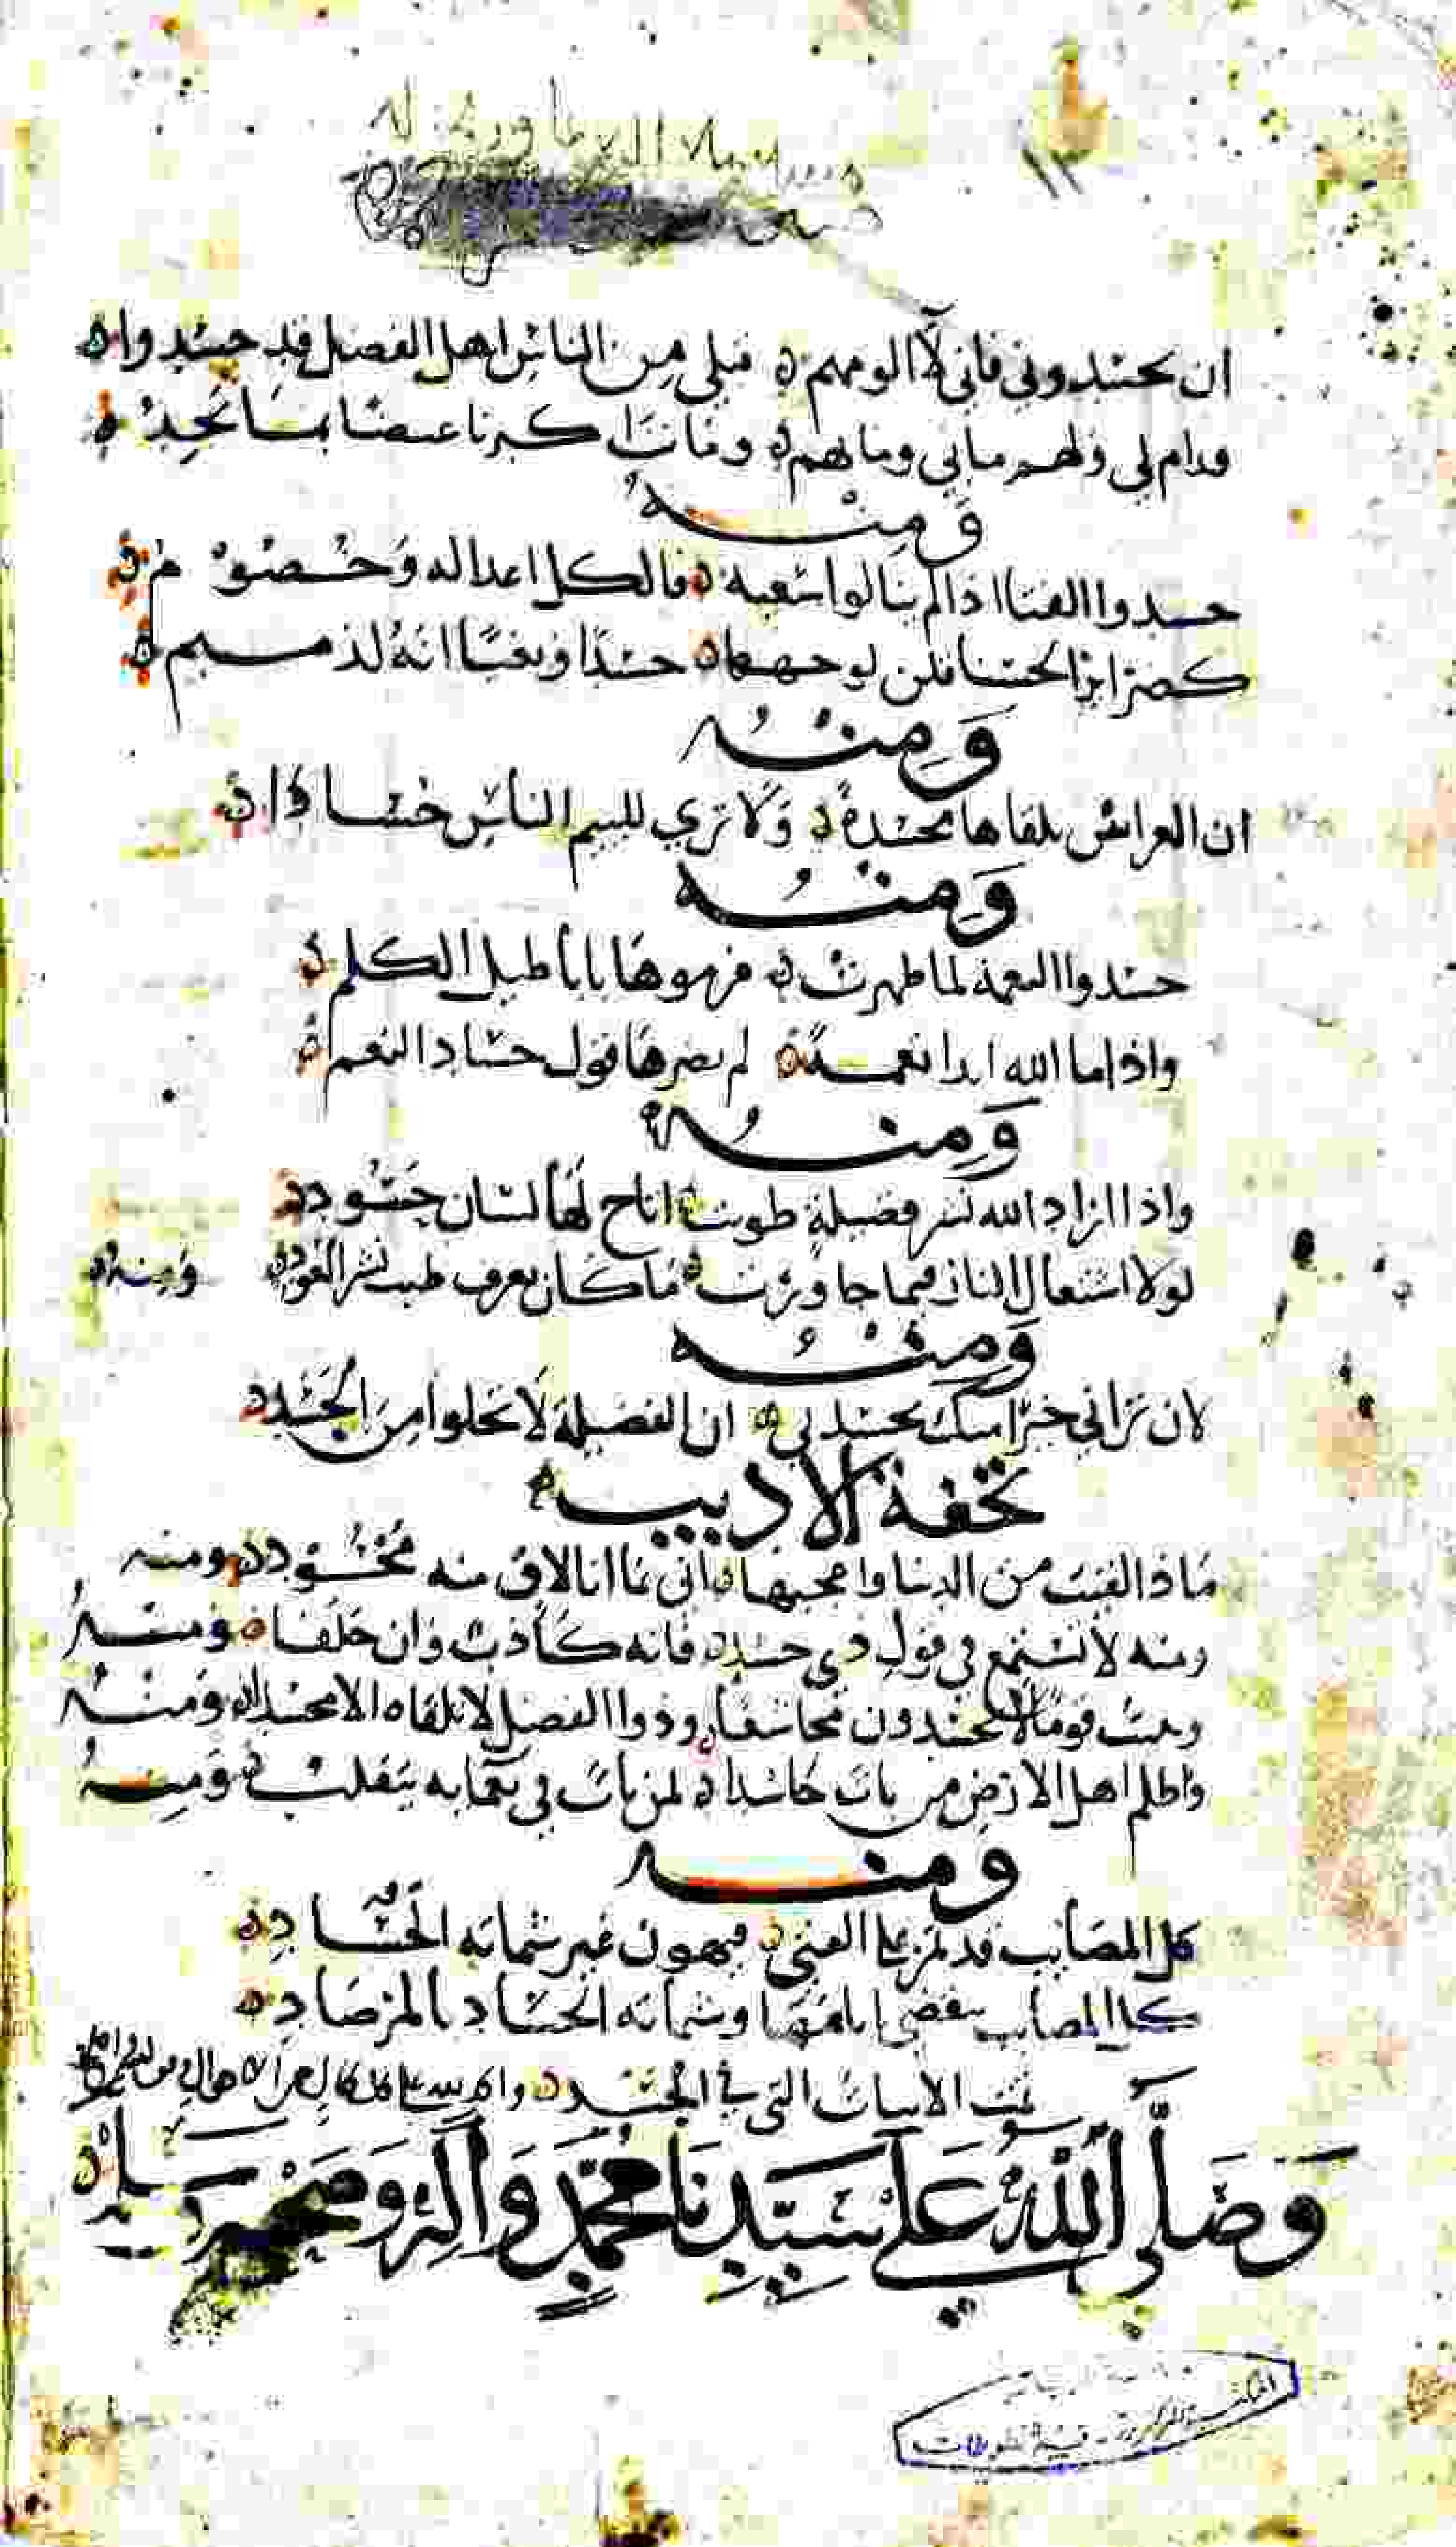 ان يحسدوني فاني لا الومهم قبلي من الناس اهل الفضل قد حسدوا
فدام لي ولهم ما بي وما بهم ومات اكبرنا غيضا بما يجد
ومنه
حسدوا الفتا اذا لم ينالوا سعيه فالكل اعدا له وخصوم
كضراير الحسنا قلن لوجهها حسدا وبغيا انه لذميم
ومنه
ان العرانين تلقاها محسدة ولا تري لليم الناس حسادا
ومنه
حسدوا النعمة لما ظهرت فرموها باباطيل الكلم
واذا ما الله ابدا نعمة لم يضرها قول حساد النعم
ومنه
واذا اراد الله نشر فضيلة طويت اتاح لها لسان حسود
لولا اشتعال النار فيما جاورت ما كان يعرف طيب نشر العود ومنه
ومنه
ان الفضيلة لا تخلوا من الحسد
تحفة الاديب
ماذا لقيت من الدنيا واعجبها اني بما انا لاق منه محسود ومنه
ومنه لا تستمع في قول ذي حسد فانه كاذب وان حلفا ومنه
وذوا الفضل لا تلقاه الا محسدا ومنه
واظلم اهل الارض من بات حاسدا لمن بات في نعمايه يتقلب ومنه
ومنه
كل المصايب قد تمر على الفتي فيهون غير شماتة الحساد
كل المصايب تنقضي ايامها وشماتة الحساد بالمرصاد
تمت الابيات التي في الحسد والحمد لله على كل حال
وصلى الله على سيدنا محمد واله وصحبه وسلم